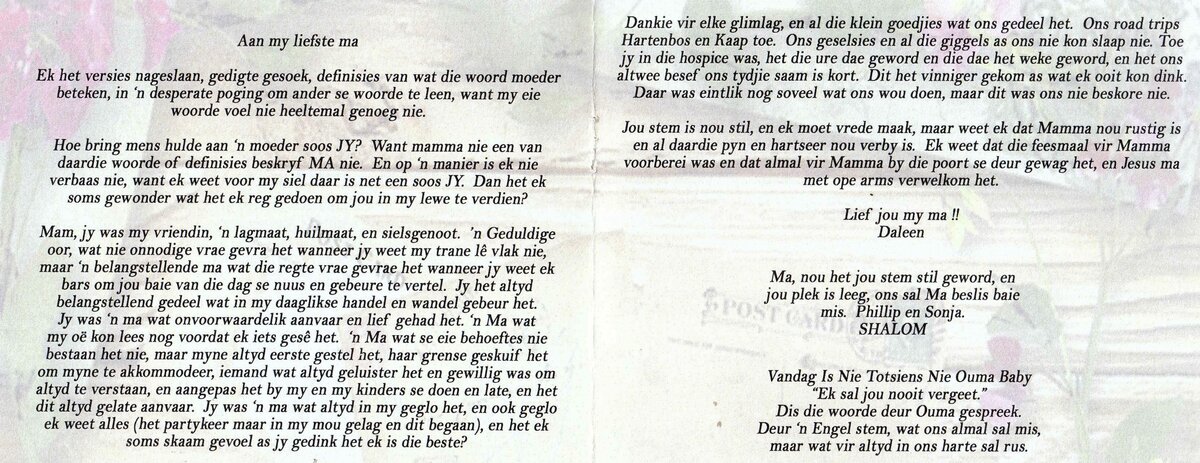 Aan my liefste ma
Ek het versies nageslaan, gedigte gesoek, definisies van wat die woord moeder
beteken, in ‘n desperate poging om ander se woorde te leen, want my eie
woorde voel nie heeltemal genoeg nie.
Hoe bring mens hulde aan ‘n moeder soos JY? Want mamma nie een van
daardie woorde of definisies beskryf MA nie. En op ‘n manier is ek nie
verbaas nie, want ek weet voor my siel daar is net een soos JY. Dan het ek
soms gewonder wat het ek reg gedoen om jou in my lewe te verdien?
Mam, jy was my vriendin, ‘n lagmaat, huilmaat, en sielsgenoot. ’n Geduldige
oor, wat nie onnodige vrae gevra het wanneer jy weet my trane lê vlak nie,
maar ‘n belangstellende ma wat die regte vrae gevrae het wanneer jy weet ek
bars om jou baie van die dag se nuus en gebeure te vertel. Jy het altyd
belangstellend gedeel wat in my daaglikse handel en wandel gebeur het.
Jy was ‘n ma wat onvoorwaardelik aanvaar en lief gehad het. ‘n Ma wat
my oë kon lees nog voordat ek iets gesê het. ‘n Ma wat se eie behoeftes nie
bestaan het nie, maar myne altyd eerste gestel het, haar grense geskuif het
om myne te akkommodeer, iemand wat altyd geluister het en gewillig was om
altyd te verstaan, en aangepas het by my en my kinders se doen en late, en het
dit altyd gelate aanvaar. Jy was ‘n ma wat altyd in my geglo het, en ook geglo
ek weet alles (het partykeer maar in my mou gelag en dit begaan), en het ek
soms skaam gevoel as jy gedink het ek is die beste?
Dankie vir elke glimlag, en al die klein goedjies wat ons gedeel het. Ons road trips
Hartenbos en Kaap toe. Ons geselsies en al die giggels as ons nie kon slaap nie. Toe
jy in die hospice was, het die ure dae geword en die dae het weke geword, en het ons
altwee besef ons tydjie saam is kort. Dit het vinniger gekom as wat ek ooit kon dink.
Daar was eintlik nog soveel wat ons wou doen, maar dit was ons nie beskore nie.
Jou stem is nou stil, en ek moet vrede maak, maar weet ek dat Mamma nou rustig is
en al daardie pyn en hartseer nou verby is. Ek weet dat die feesmaal vir Mamma
voorberei was en dat almal vir Mamma by die poort se deur gewag het, en Jesus ma
met ope arms verwelkom het.
Lief jou my ma !!
Daleen
Ma, nou het jou stem stil geword, en
jou plek is leeg, ons sal Ma beslis baie
mis. Phillip en Sonja.
SHALOM
POST CARD
Vandag Is Nie Totsiens Nie Ouma Baby
“Ek sal jou nooit vergeet.”
Dis die woorde deur Ouma gespreek.
Deur ‘n Engel stem, wat ons almal sal mis,
maar wat vir altyd in ons harte sal rus.